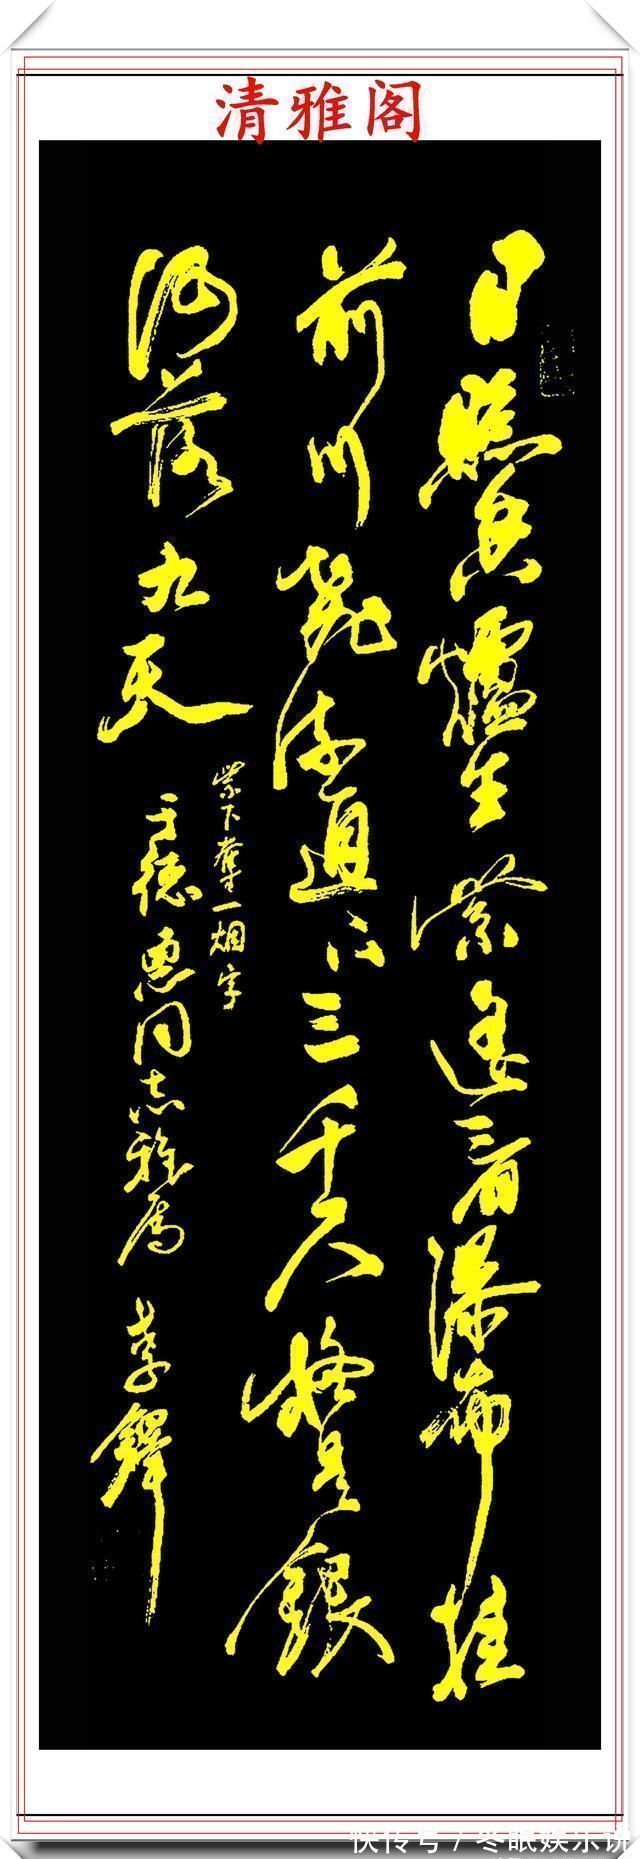 清雅阁
日照香爐生紫遥看瀑布挂
前川飛流直下三千尺疑是銀
河落九天
紫下奪一烟字
于德惠同志雅属 李鐸
快传号 / 冬眠娱乐